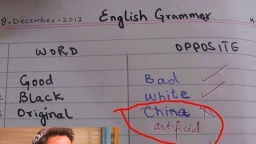 8-December-2013 English Grammar
WORD OPPOSITE
Good Bad
Black White
Original China
artificial